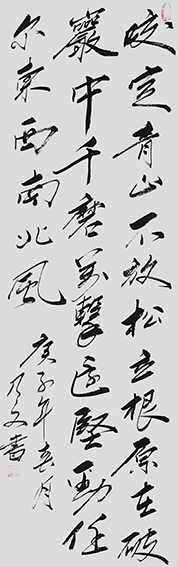 咬定青山不放松立根原在破
巖中千磨萬擊還堅勁任
尔東西南北風
庚子年春月
乃文書